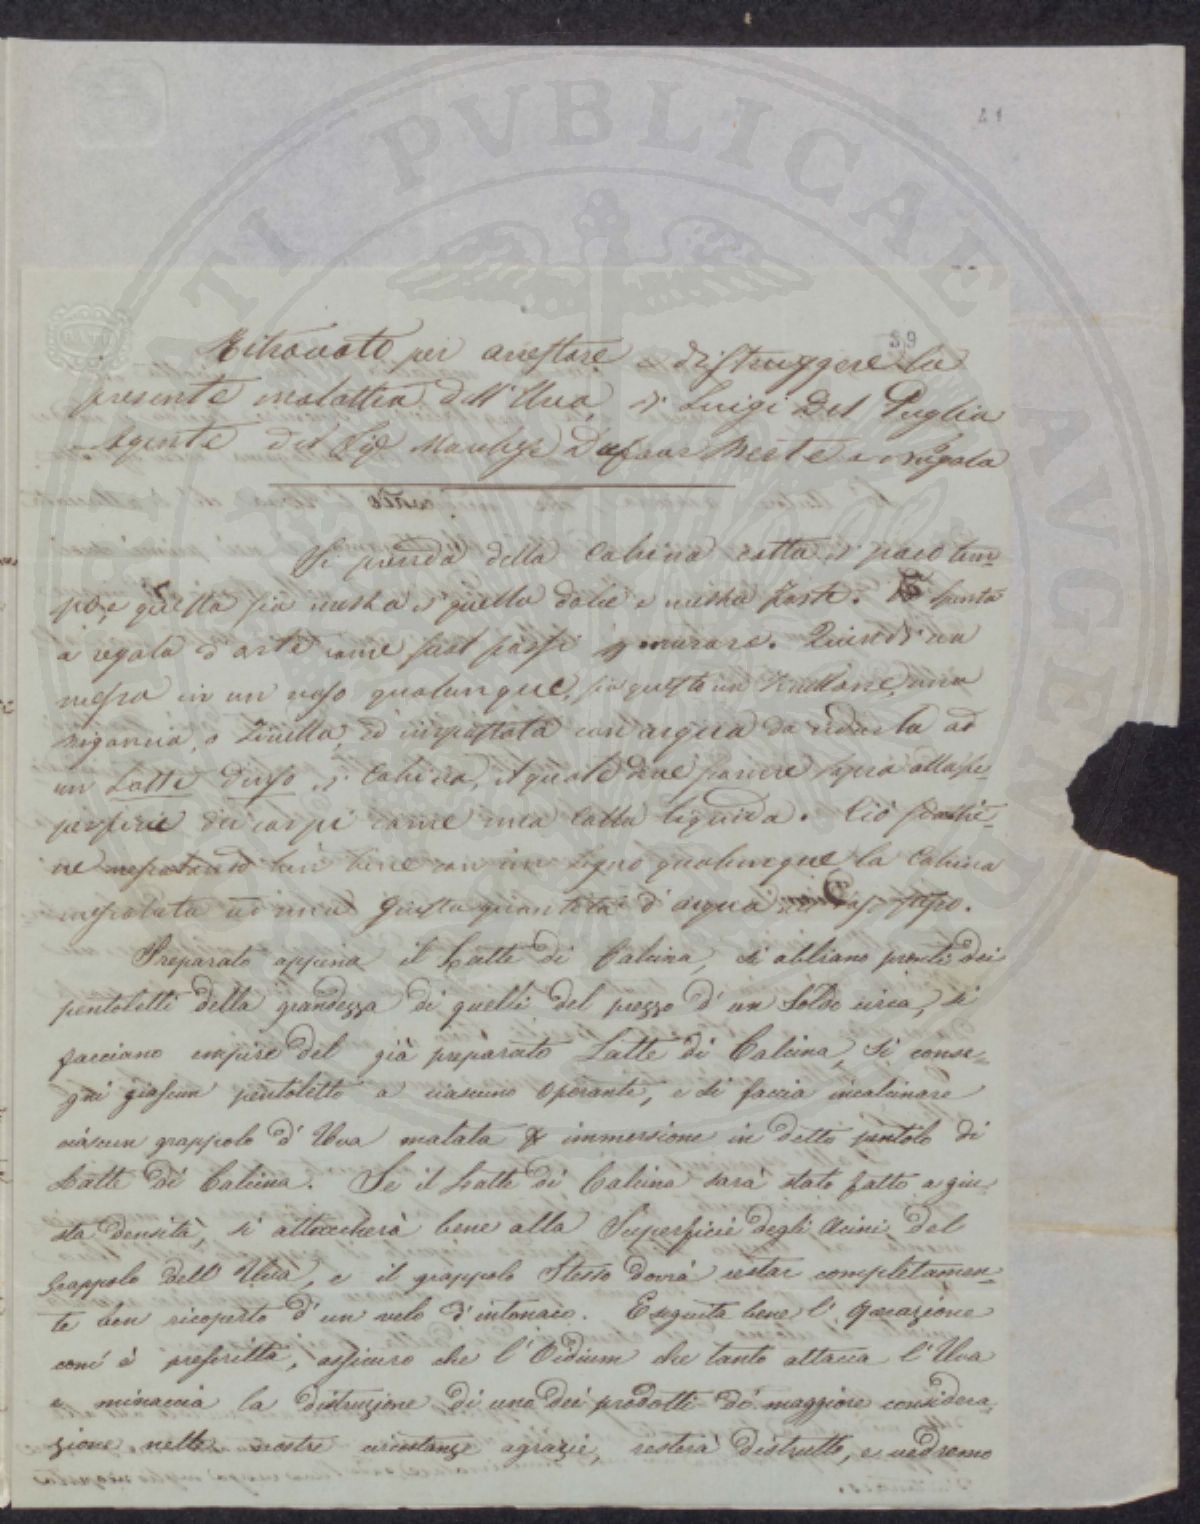 41
PUBLICAE
39
Ritrovato per arrestare e distruggere la
presente malattia dell'Uva, di Luigi Del Puglia
Agente del Sig.e Marchese Dufour Berte a
Si prenda della Calcina cotta di poco tem=
po, e questa sia mista di quella dolce e mista forte. Si spenta
a regola d'arte come suol farsi p murare. Quindi
messa in un vaso qualunque, sia questo un una
o Zinella, ed impastata con acqua da ridurla ad
un Latte denso di Calcina, il quale deve parere sopra alla su=
perficie dei corpi come una Colla liquida. Ciò si ottie=
ne mescolando ben bene con un Legno qualunque la Calcina
mescolata ad una giusta quantità d'acqua nel vaso stesso.
Preparato appena il Latte di Calcina, si abbiano pronti dei
pentoletti della grandezza di quelli del prezzo d'un Soldo circa, si
facciano empire del già preparato Latte di Calcina, si conse=
gni ciascun pentoletto a ciascuno Operante, e si faccia incalcinare
ciascun grappolo d'Uva malata p immersione in detto pentolo di
Latte di Calcina. Se il Latte di Calcina sarà stato fatto a giu
sta densità, si attaccherà bene alla Superficie degli Acini del
Grappolo dell'Uva, e il grappolo Stesso dovrà restar completamen=
te ben ricoperto d'un velo d'intonaco. Eseguita bene l'Operazione
com'è prescritta, assicuro che l'Oidium che tanto attacca l'Uva
e minaccia la distruzione di uno dei prodotti di maggiore considera
zione nelle nostre circostanze agrarie, resterà distrutto, e vedremo